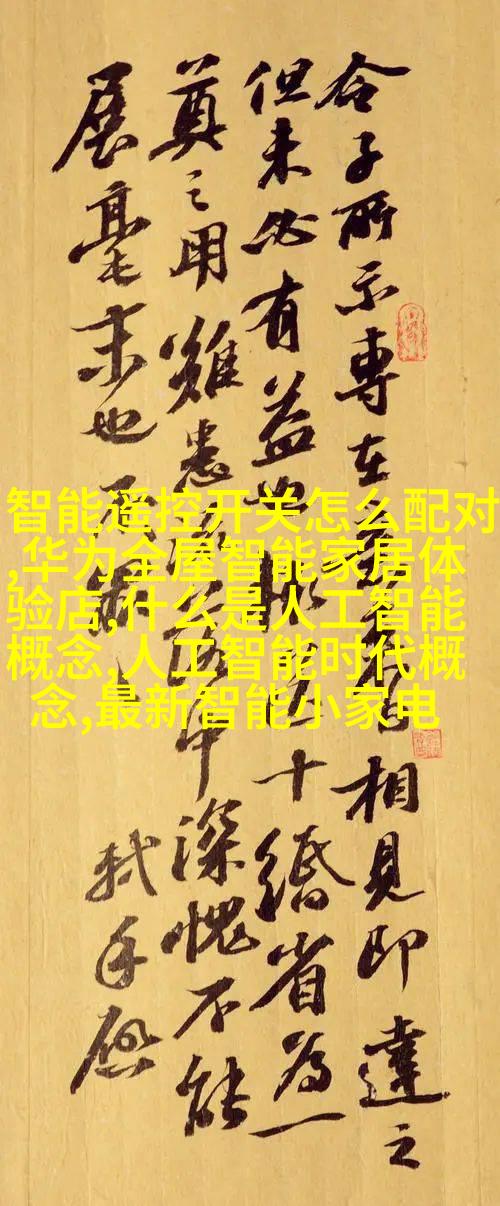 智能遥控开关怎么配对
,华为全屋智能家居体
验店,什么是人工智能
概念,人工智能时代概
念,最新智能小家电
合子所示專在相見即達之
但未必有益也十緡省為一
奠之用難患中深愧不能
展毫末也不罪
軾手啓